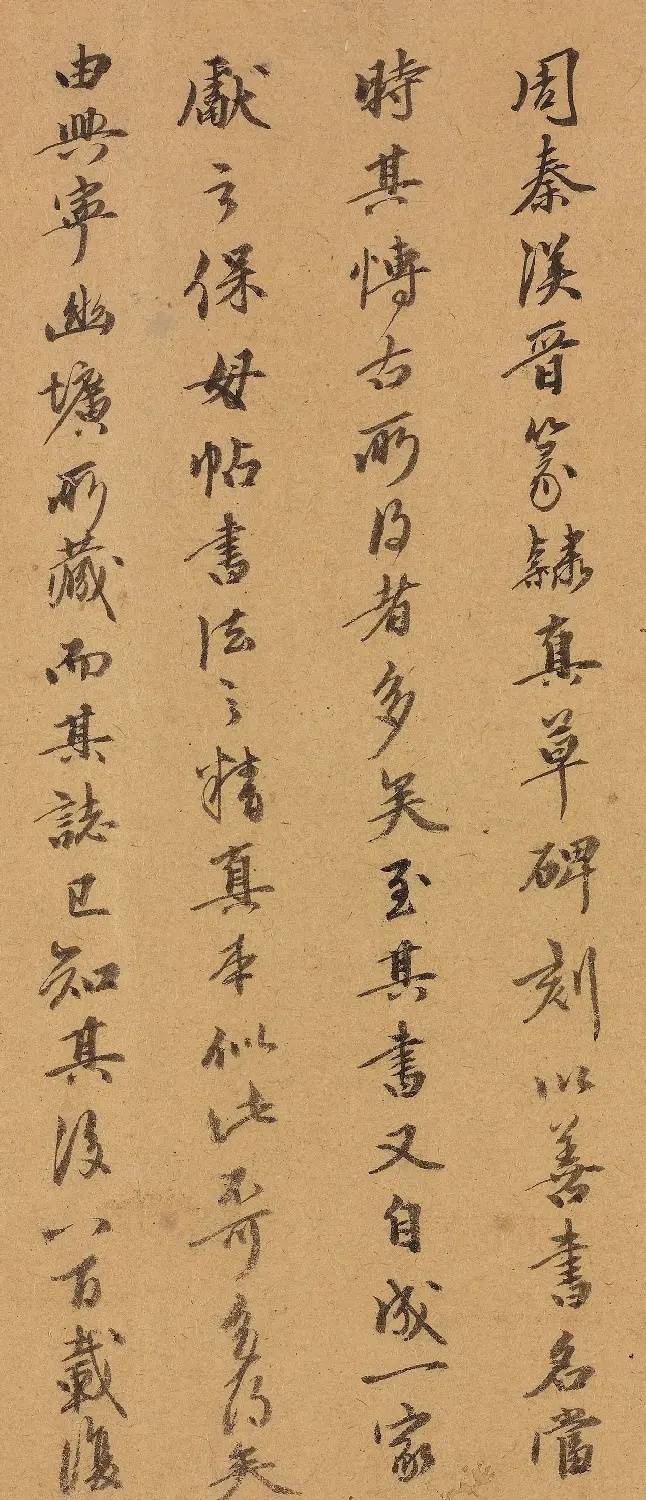 周秦漢晉篆隸真草碑刻以善書名當
時其博古所得者多矣至其書又自成一家
獻之保母帖書法之精真本似此不可多得矣
由興寧幽壙所藏而其誌已知其後八百載復